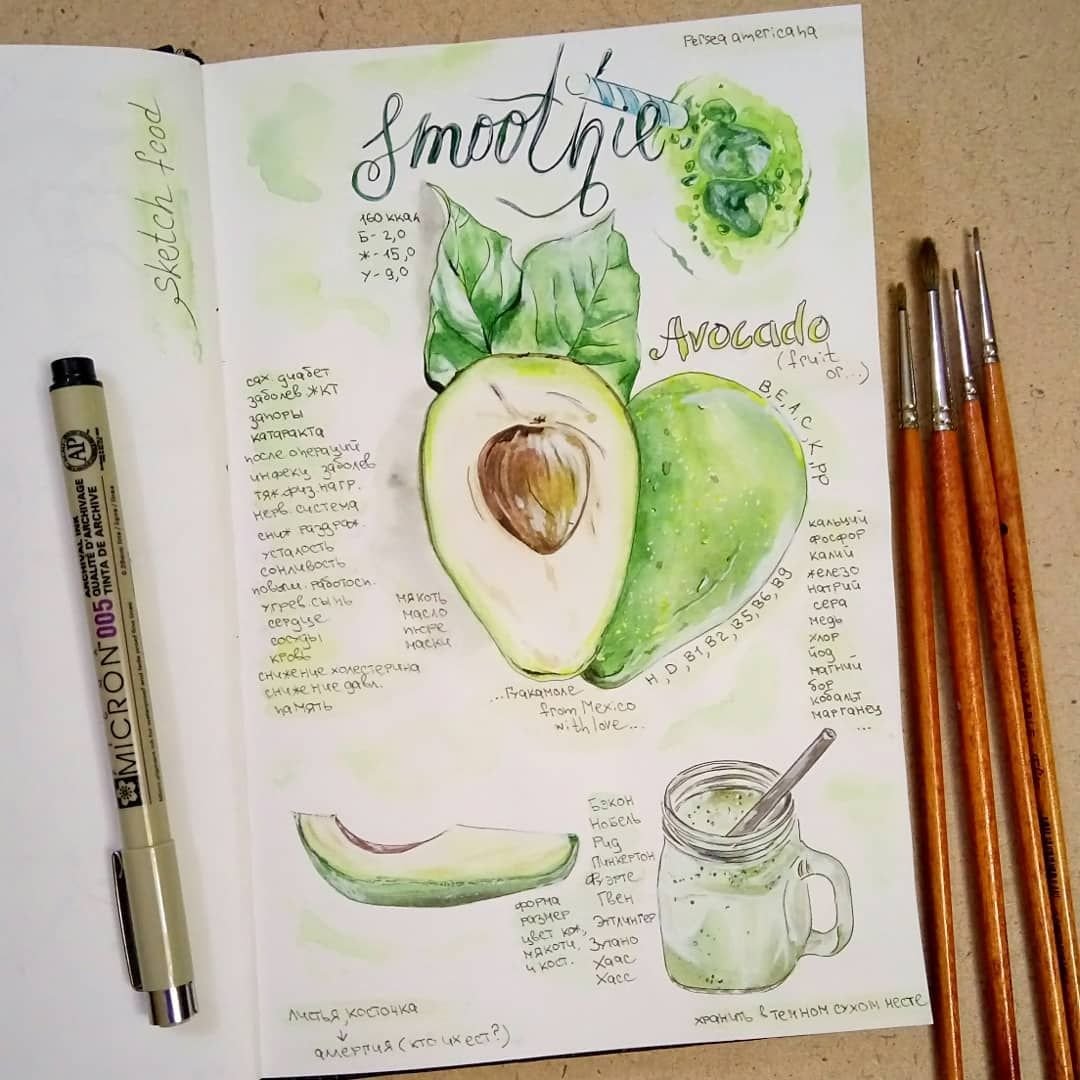 sketch food
Persea americana
Smoothie
160 ккал
Б - 2,0
Ж - 15,0
У - 9,0
Avocado
(fruit
or...)
B, E, A, C, K, PP
H, D, B1, B2, B5, B6, B9
сах. диабет
заболев ЖКТ
запоры
катаракта
после операций
инфекц заболев
тяж.физ.нагр.
нерв. система
сниж раздраж.
усталость
сонливость
повыш. работосп.
угрев. сыпь
сердце
сосуды
кровь
снижение холестерина
снижение давл.
память
мякоть
масло
пюре
маски
кальций
фосфор
калий
железо
натрий
сера
медь
хлор
йод
магний
бор
кобальт
марганец
...
...Гуакамоле
from Mexico
with love...
Бэкон
Нобель
Рид
Пинкертон
Фуэрте
Гвен
Этлингер
Зутано
Хаас
Хасс
форма
размер
цвет кож.,
мякоти,
и кост.
листья, косточка
↓
аллергия (кто их ест?)
хранить в темном сухом месте
AP
ARCHIVAL INK
QUALITÉ D'ARCHIVAGE
TINTA DE ARCHIVE
MICRON 005